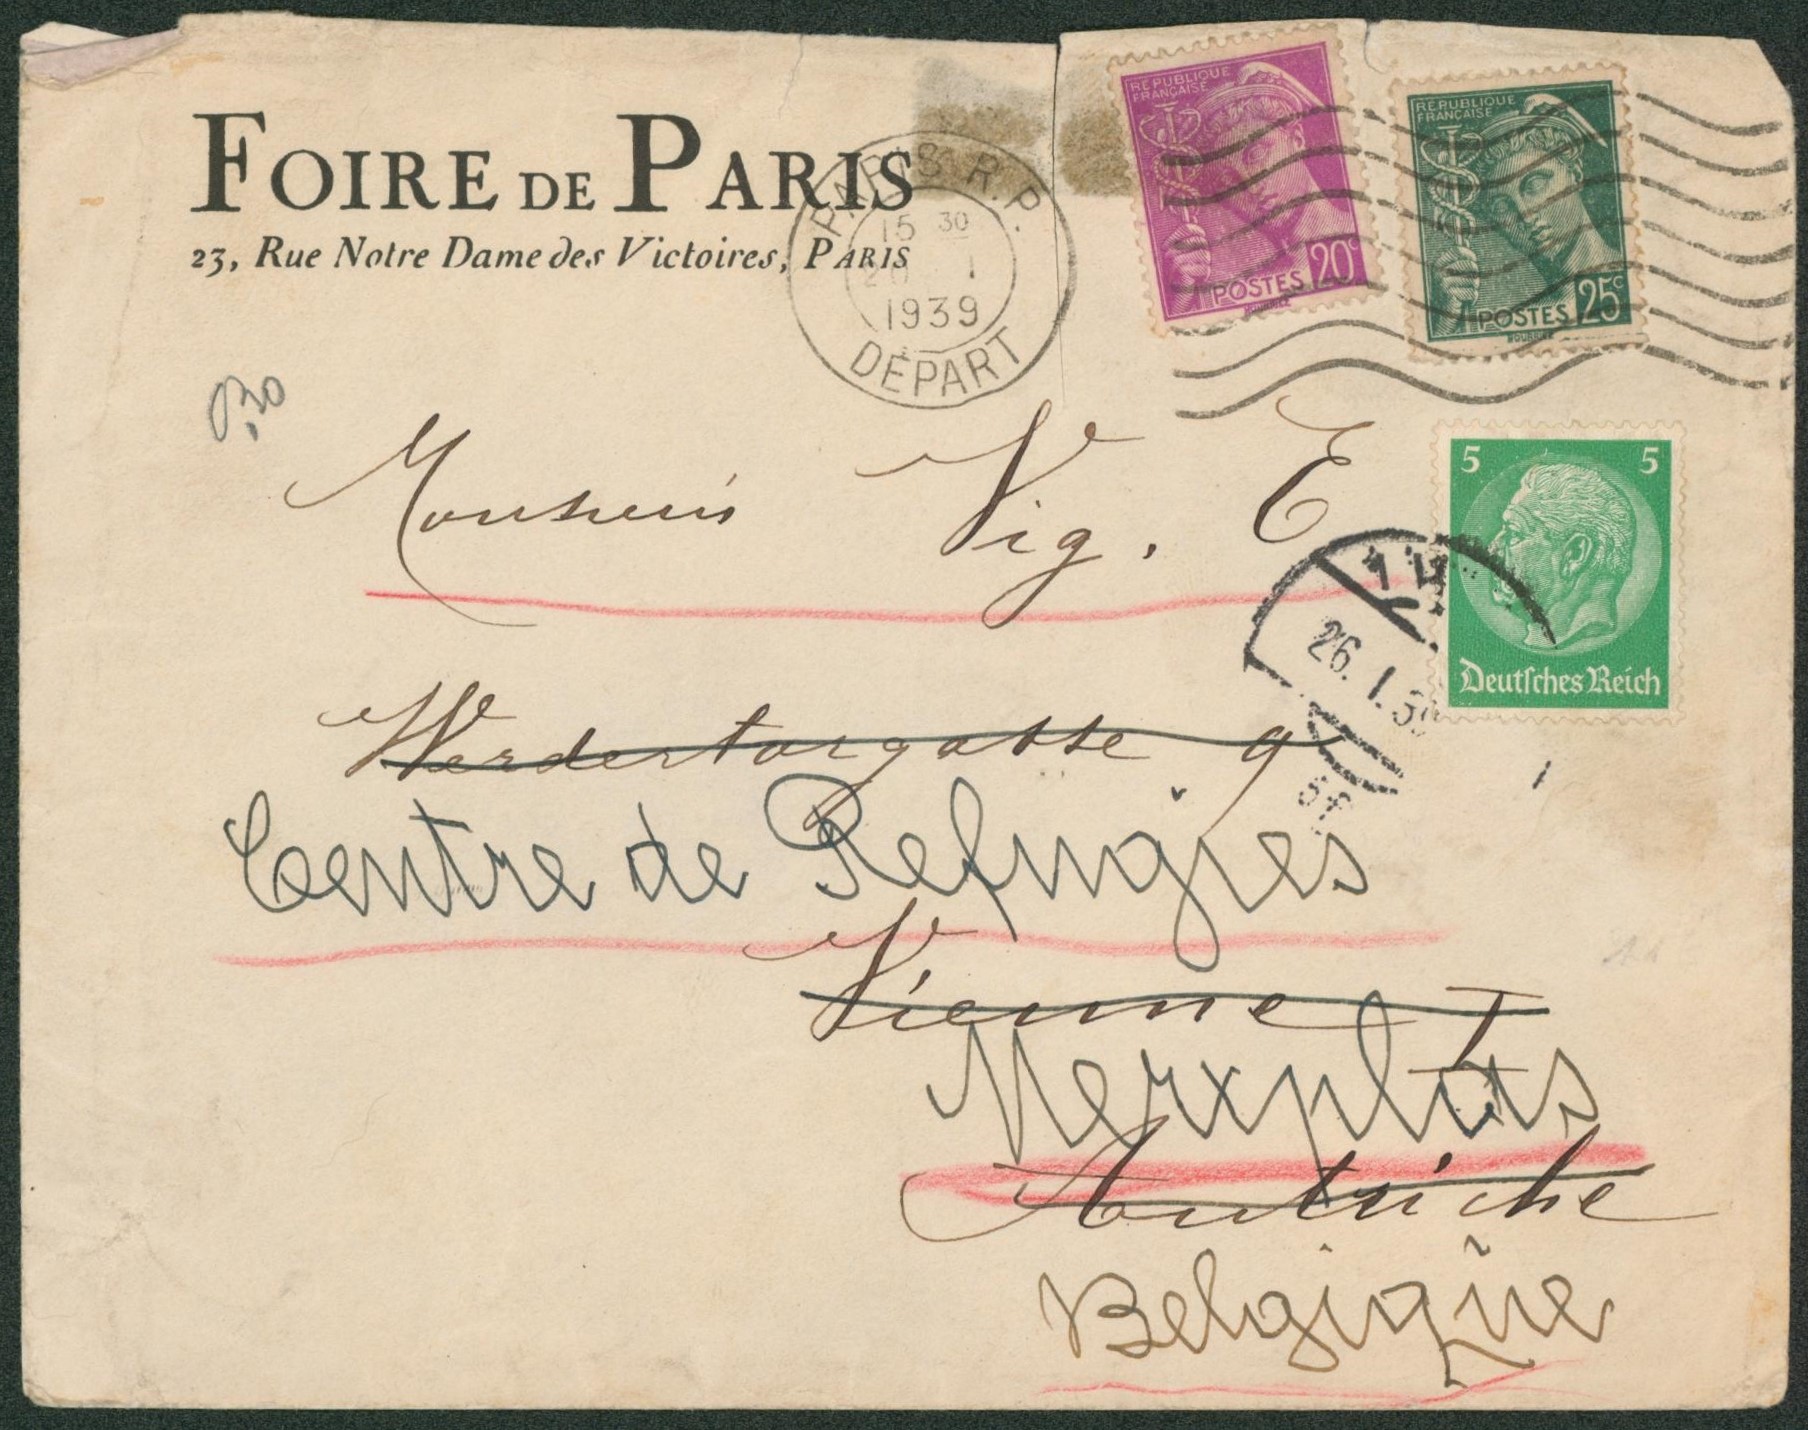 FOIRE DE PARIS
23, Rue Notre Dame des Victoires, PARIS
PARIS R.P.
15 30
1939
DÉPART
RÉPUBLIQUE
FRANÇAISE
POSTES 20c
RÉPUBLIQUE
FRANÇAISE
POSTES 25c
5 5
Deutsches Reich
26.1.
Monsieur Vig. E
Werdertorgasse 9
Centre de Refugies
Vienne I
Merxplas
Autriche
Belgique